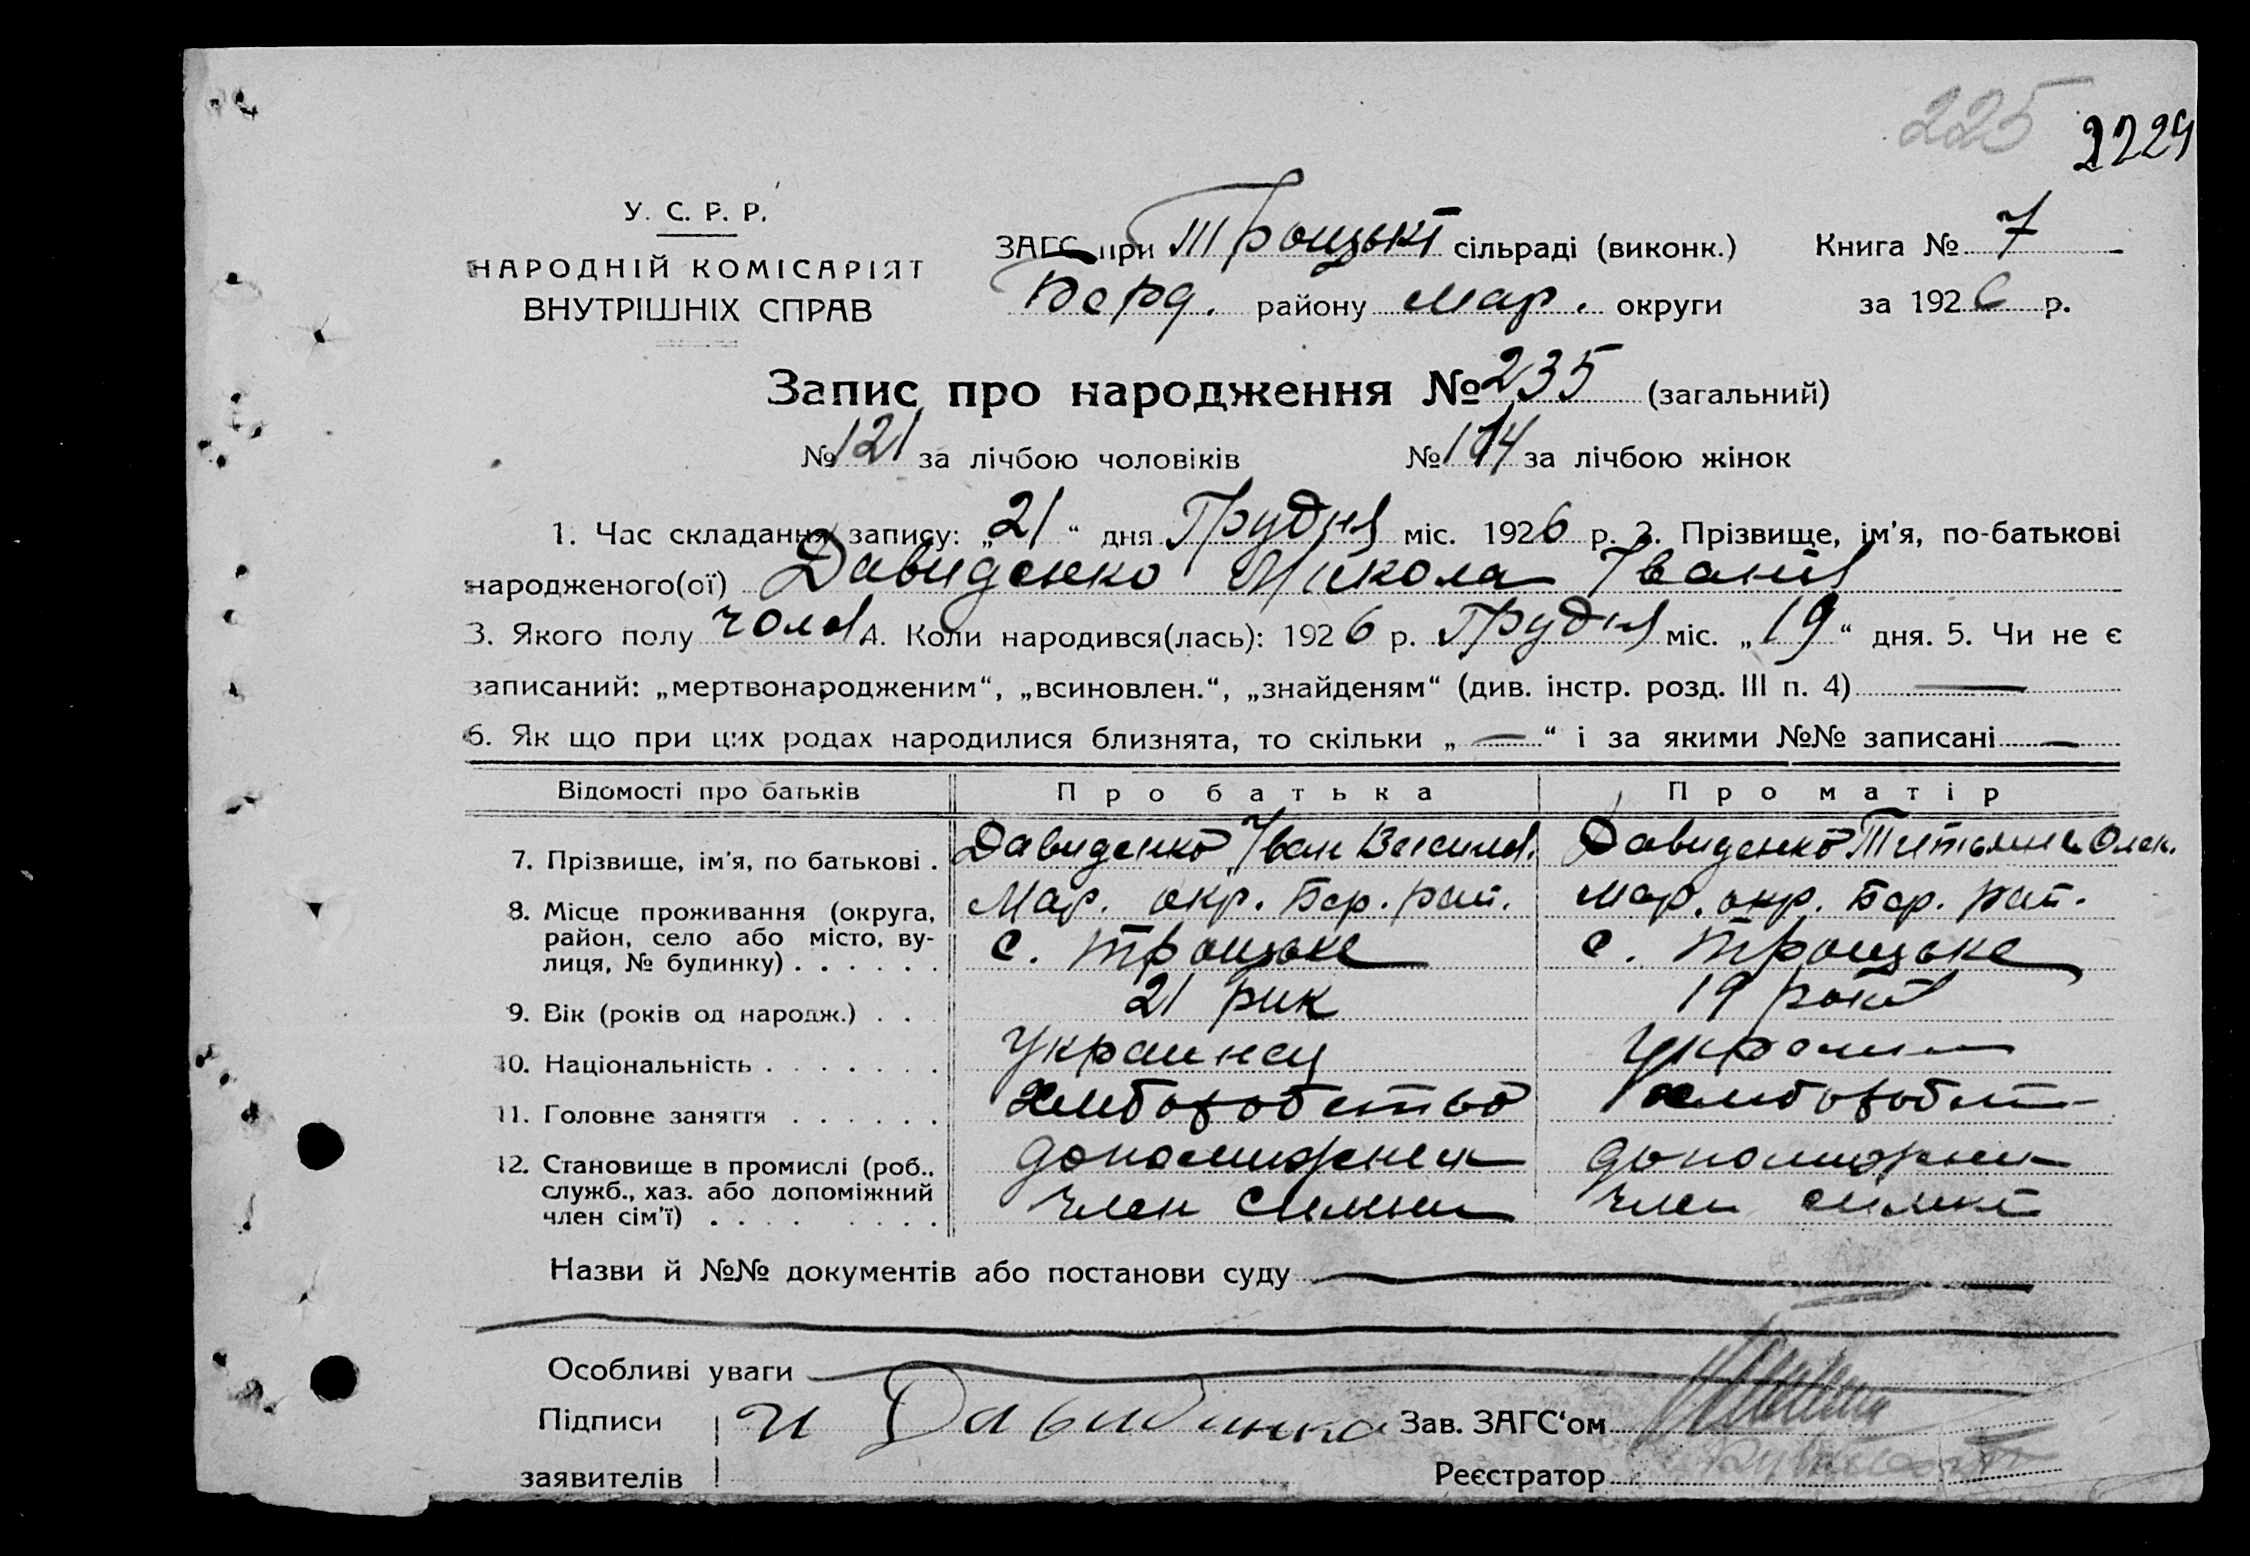 225 2229
У. С. Р. Р.
НАРОДНІЙ КОМІСАРІЯТ
ВНУТРІШНІХ СПРАВ
ЗАГС при Троицькі сільраді (виконк.) Книга № 7
Берд. району Мар. округи за 1926 р.
Запис про народження № 235 (загальний)
№ 121 за лічбою чоловіків № 114 за лічбою жінок
1. Час складання запису: „21“ дня Грудня міс. 1926 р. 2. Прізвище, ім'я, по-батькові
народженого(ої) Давиденко Микола Іванів
3. Якого полу чолов 4. Коли народився(лась): 1926 р. Грудня міс. „19“ дня. 5. Чи не є
записаний: „мертвонародженим“, „всиновлен.“, „знайденям“ (див. інстр. розд. III п. 4) —
6. Як що при цих родах народилися близнята, то скільки „—“ і за якими №№ записані —
Відомості про батьків Про батька Про матір
7. Прізвище, ім'я, по батькові . Давиденко Іван Васильев. Давиденко Титьяна Олек.
8. Місце проживання (округа, Мар. окр. Бер. рай. Мар. окр. Бер. рай.
район, село або місто, ву-
лиця, № будинку) . . . . . . с. Троицьке с. Троицьке
9. Вік (років од народж.) . . 21 рик 19 років
10. Національність . . . . . . . Украинец Украин
11. Головне заняття . . . . . . хлиборобство хлибороб
12. Становище в промислі (роб., допомижния допомижния
служб., хаз. або допоміжний
член сім'ї) . . . . . . . . член симни член симни
Назви й №№ документів або постанови суду —
Особливі уваги —
Підписи И Давиденко Зав. ЗАГС'ом
заявителів Реєстратор